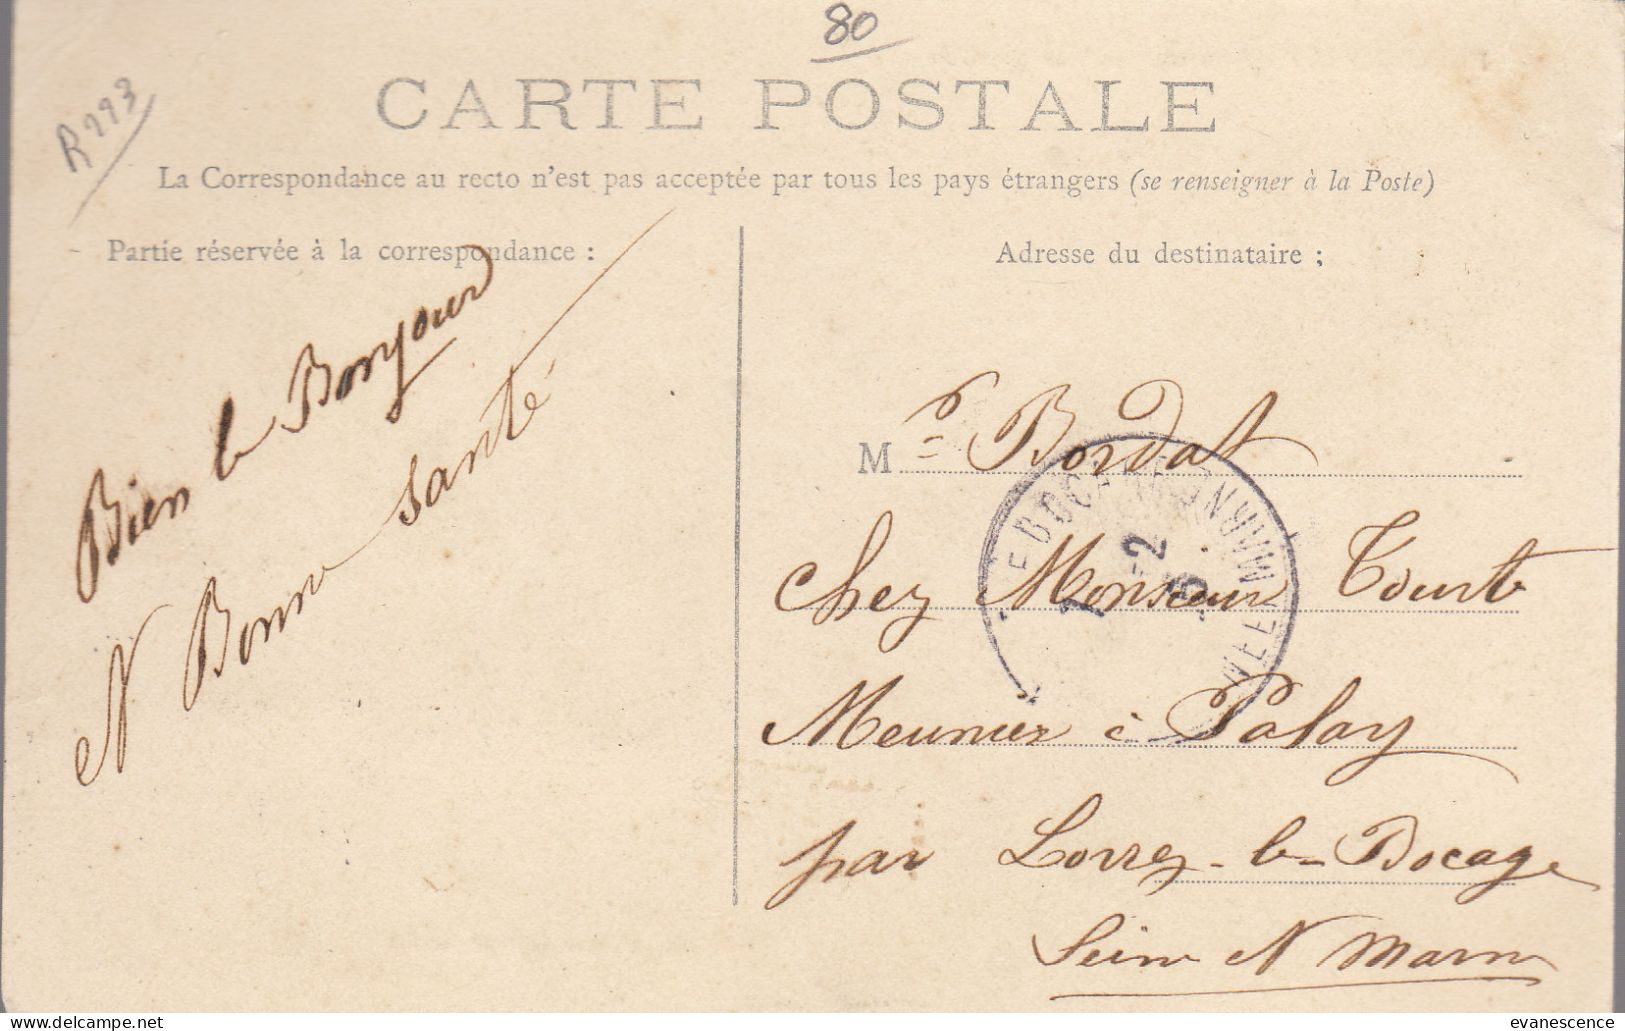 80
R993
CARTE POSTALE
La Correspondance au recto n'est pas acceptée par tous les pays étrangers (se renseigner à la Poste)
Partie réservée à la correspondance :
Bien le Bonjour
et Bonne santé
Adresse du destinataire ;
M r Bordat
Chez Monsieur
Meunier à Palay
par Lorrez-le-Bocage
Seine et Marne
BOCAGE
SEINE MARNE
7 -2
evanescence